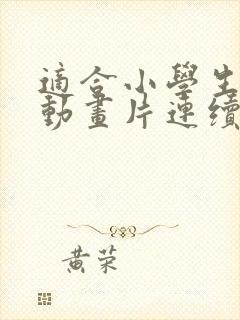 適合小學生
動畫片連續
黃榮